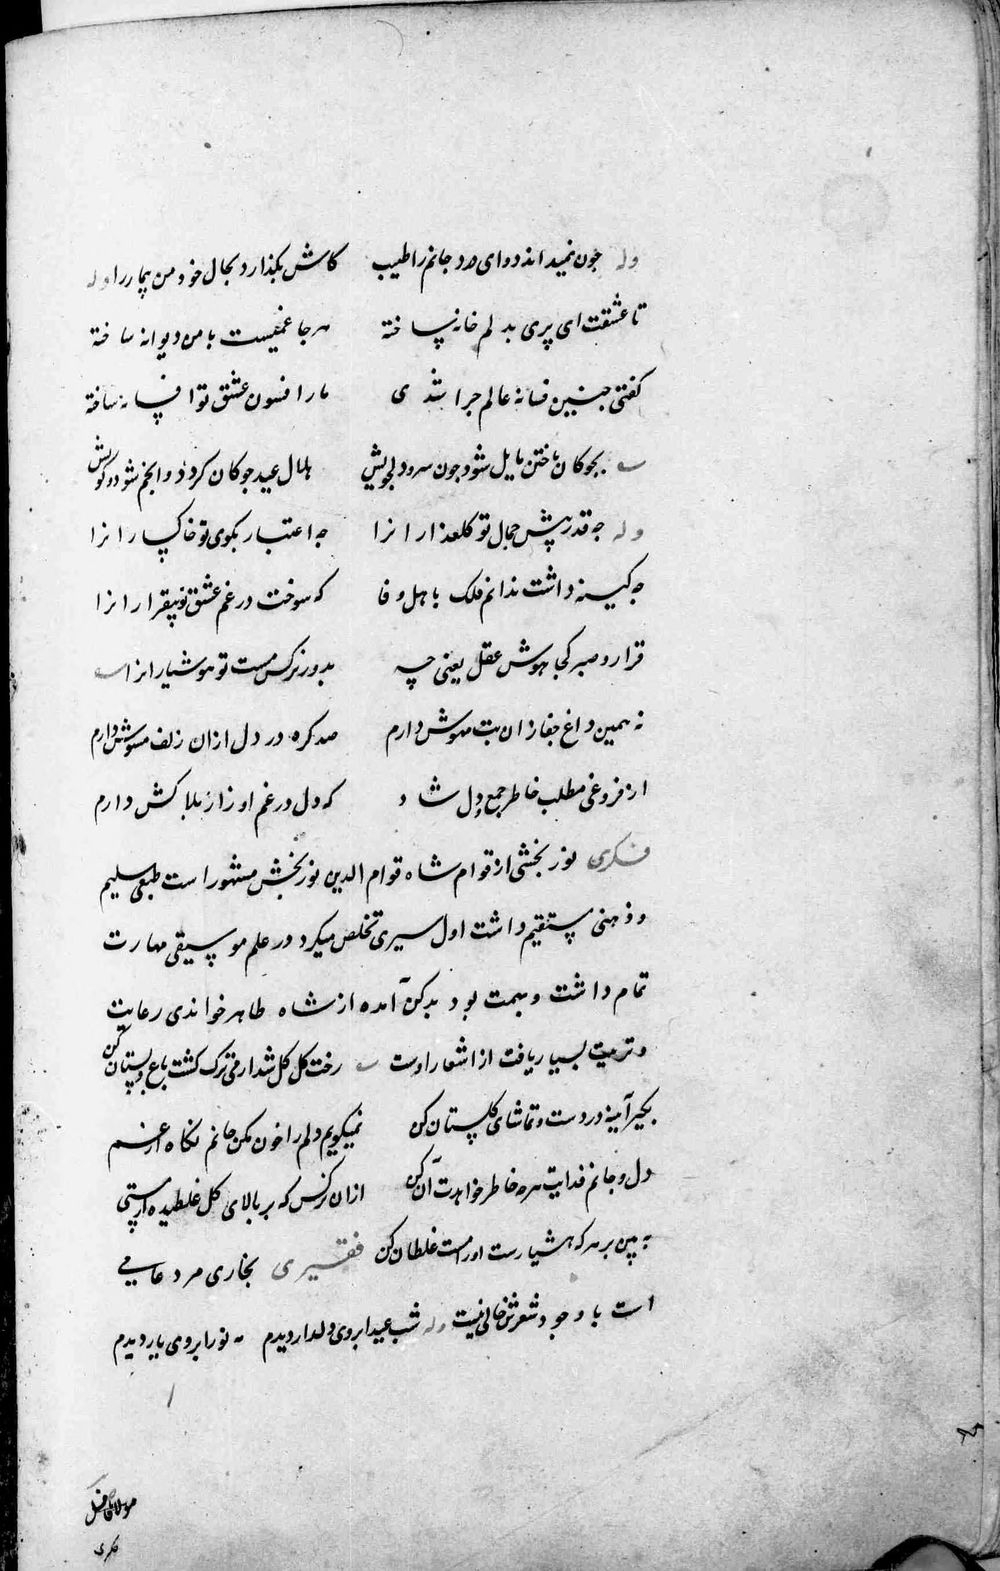 وله جون نمیداند دوای درد جانم را طبیب کاش بگذارد بحال خود من بیمار را وله
تا عشقت ای پری بدلم خانه ساخته هر جا غمیست با من دیوانه ساخته
کفتی جنین فسانه عالم جرا شدی ما را فسون عشق تو افسانه ساخته
بجوکان باختن مایل شود جون سرو دلجویش هلال عید جوکان کردد و انجم شود کویش
وله جه قدر پیش جمال تو کلعذارانرا جه اعتبار بکوی تو خاکسارانرا
جه کینه داشت ندانم فلک باهل وفا که سوخت در غم عشق تو بیقرارانرا
قرار و صبر کجا هوش عقل یعنی چه بدور نرکس مست تو هوشیارانرا
نه همین داغ جفا زان بت مهوش دارم صد کره در دل ازان زلف مشوش دارم
از فروغی مطلب خاطر جمع و دل شاد که دل در غم او زار بلاکش دارم
فکری نوربخشی از قوام شاه قوام الدین نوربخش مشهور است طبعی سلیم
و ذهنی مستقیم داشت اول سیری تخلص میکرد در علم موسیقی مهارت
تمام داشت و بدکن آمده از شاه طاهر خواندی رعایت
و تربیت بسیار یافت از اشعار اوست رخت کل کل شد از می ترک کشت باغ و بستان کن
بکیر آیینه در دست و تماشای کلستان کن نمیکویم دلم را خون مکن جانم نکاه از غم
دل و جانم فدایت هرچه خاطر خواهدت آن کن ازان نرکس که بر بالای کل غلطیده از مستی
به بین بر هر که هشیارست او را مست غلطان کن فقیری بخاری مرد عامی
است با وجود شعرش خالی نیست وله شب عید ابروی دلدار دیدم مه نو را بروی یار دیدم
مولانا فضل